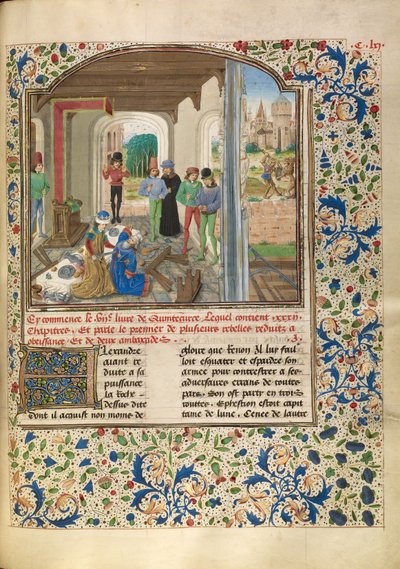 C. lxj.
Cy commence le viije. liure de Quintecurce Lequel contient xxxij
Chapitres. Et parle le premier de plusieurs rebelles reduits a
obeissance Et de deux ambaxades.
Alexandre
aiant re
duite a sa
puissance
la
dessus dite
Dont il acquist non moins de
gloire que Renon Il luy fail
loit esquater et espardre son
armee pour contrester a ses
aduersaires errans de toutes
pars. Son ost partit en trois
routtes. Ephestion estoit capi
taine de lune / Cenee de lautre